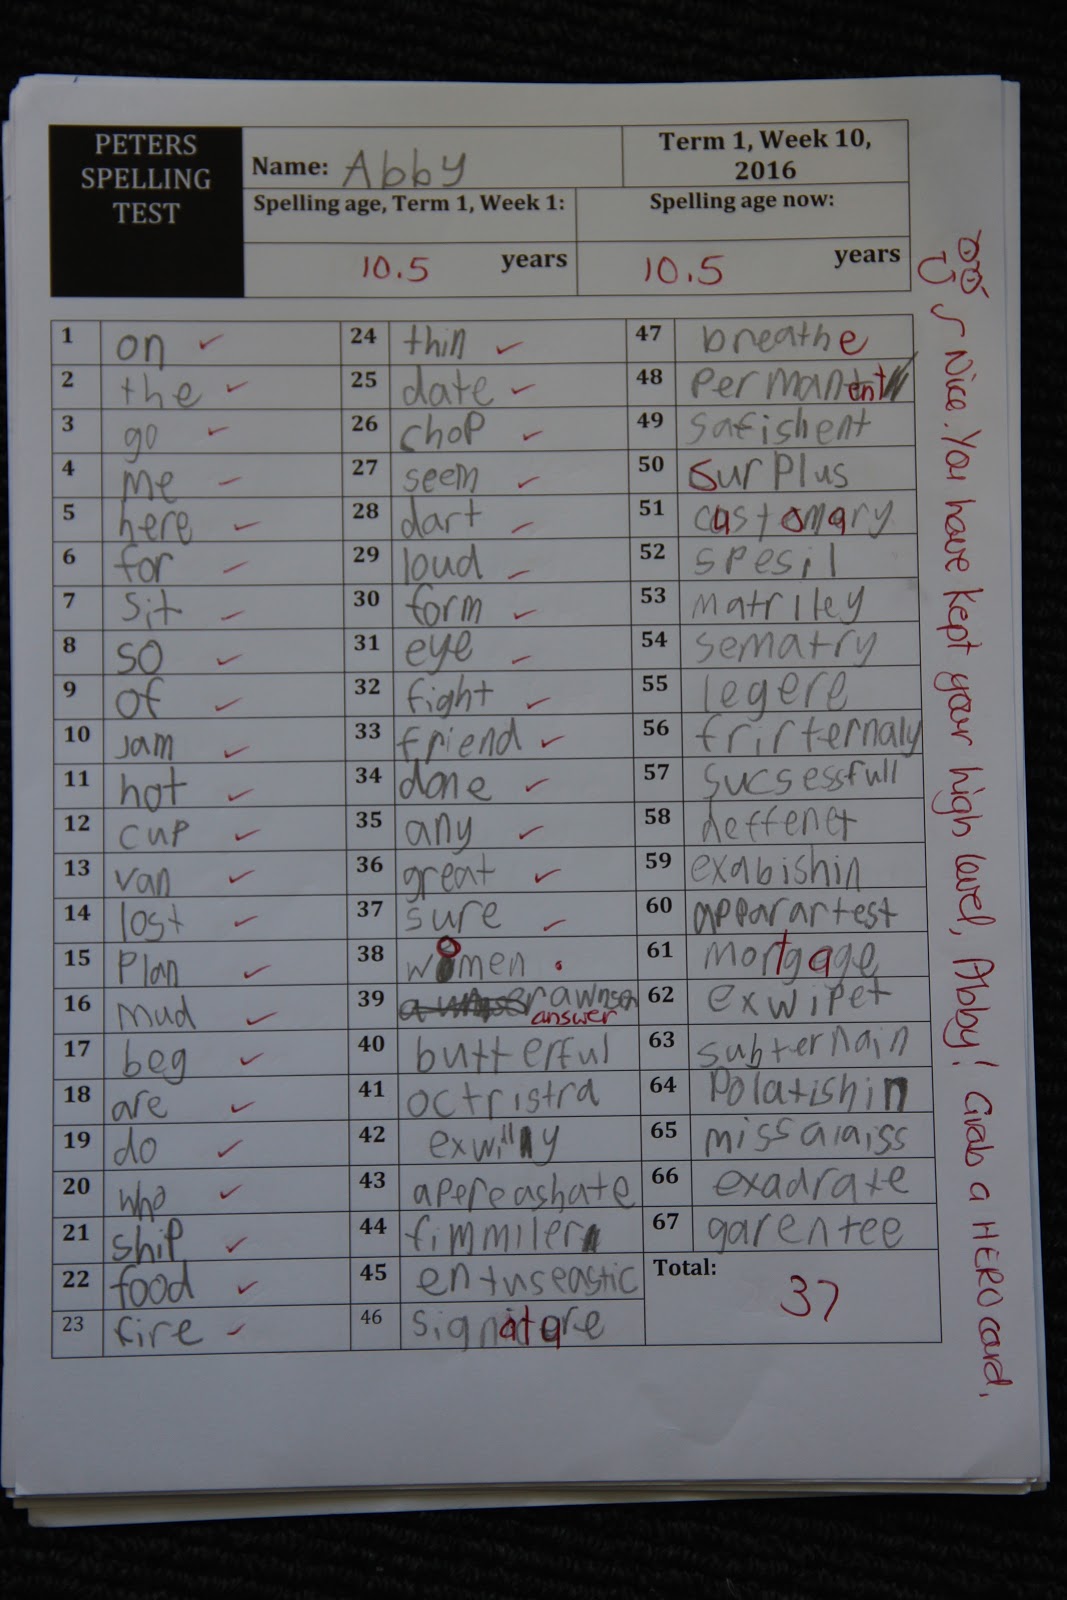 PETERS
SPELLING
TEST
Name: Abby
Term 1, Week 10,
2016
Spelling age, Term 1, Week 1:
Spelling age now:
10.5 years
10.5 years
1 on
2 the
3 go
4 me
5 here
6 for
7 sit
8 so
9 of
10 jam
11 hot
12 cup
13 van
14 lost
15 Plan
16 mud
17 beg
18 are
19 do
20 who
21 ship
22 food
23 fire
24 thin
25 date
26 chop
27 seem
28 dart
29 loud
30 form
31 eye
32 fight
33 friend
34 done
35 any
36 great
37 sure
38 women
39 rawnser
answer
40 butterful
41 octristra
42 exwilly
43 apereashate
44 fimmiler
45 entuseastic
46 signature
47 breathe
48 Permanent
49 safishent
50 surplus
51 customary
52 spesil
53 matriley
54 sematry
55 legere
56 frirternaly
57 sucsessfull
58 deffenet
59 exabishin
60 apparartest
61 mortgage
62 exwipet
63 subternain
64 Polatishin
65 missalaiss
66 exadrate
67 garentee
Total:
37
Nice. You have kept your high level, Abby! Grab a HERO card.